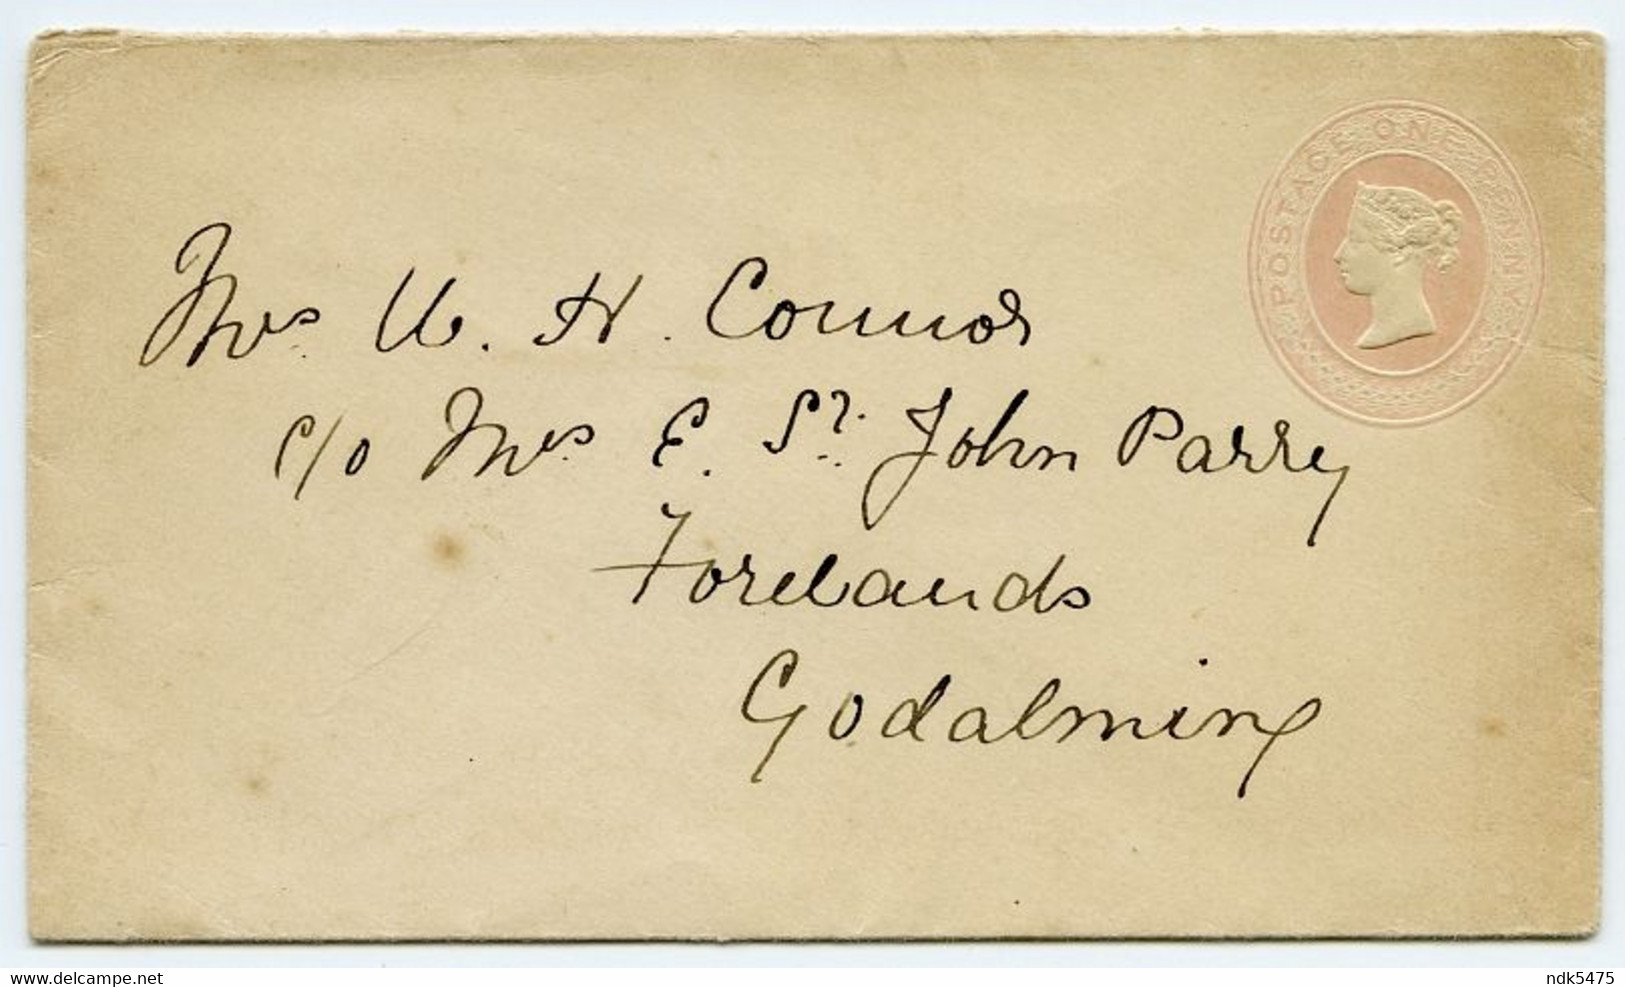 POSTAGE ONE PENNY
Mrs W. H. Connor
c/o Mrs E. St. John Parry
Forelands
Godalming
delcampe.net
ndk5475